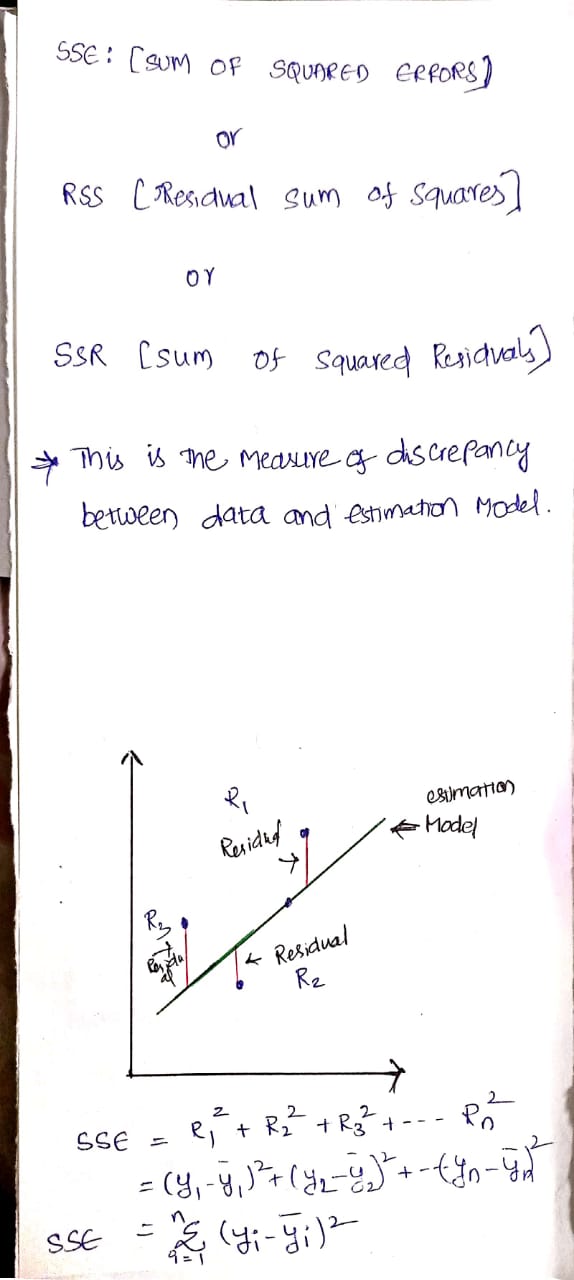 SSE: [SUM OF SQUARED ERRORS]
or
RSS [Residual sum of squares]
or
SSR [sum of squared Residuals]
→ This is the measure of discrepancy
between data and estimation Model.
R₁
Residual
estimation
← Model
R₃
Residual
← Residual
R₂
SSE = R₁² + R₂² + R₃² + --- Rₙ²
= (y₁-ȳ₁)² + (y₂-ȳ₂)² + -- (yₙ-ȳₙ)²
SSE = ⁿΣᵢ₌₁ (yᵢ-ȳᵢ)²